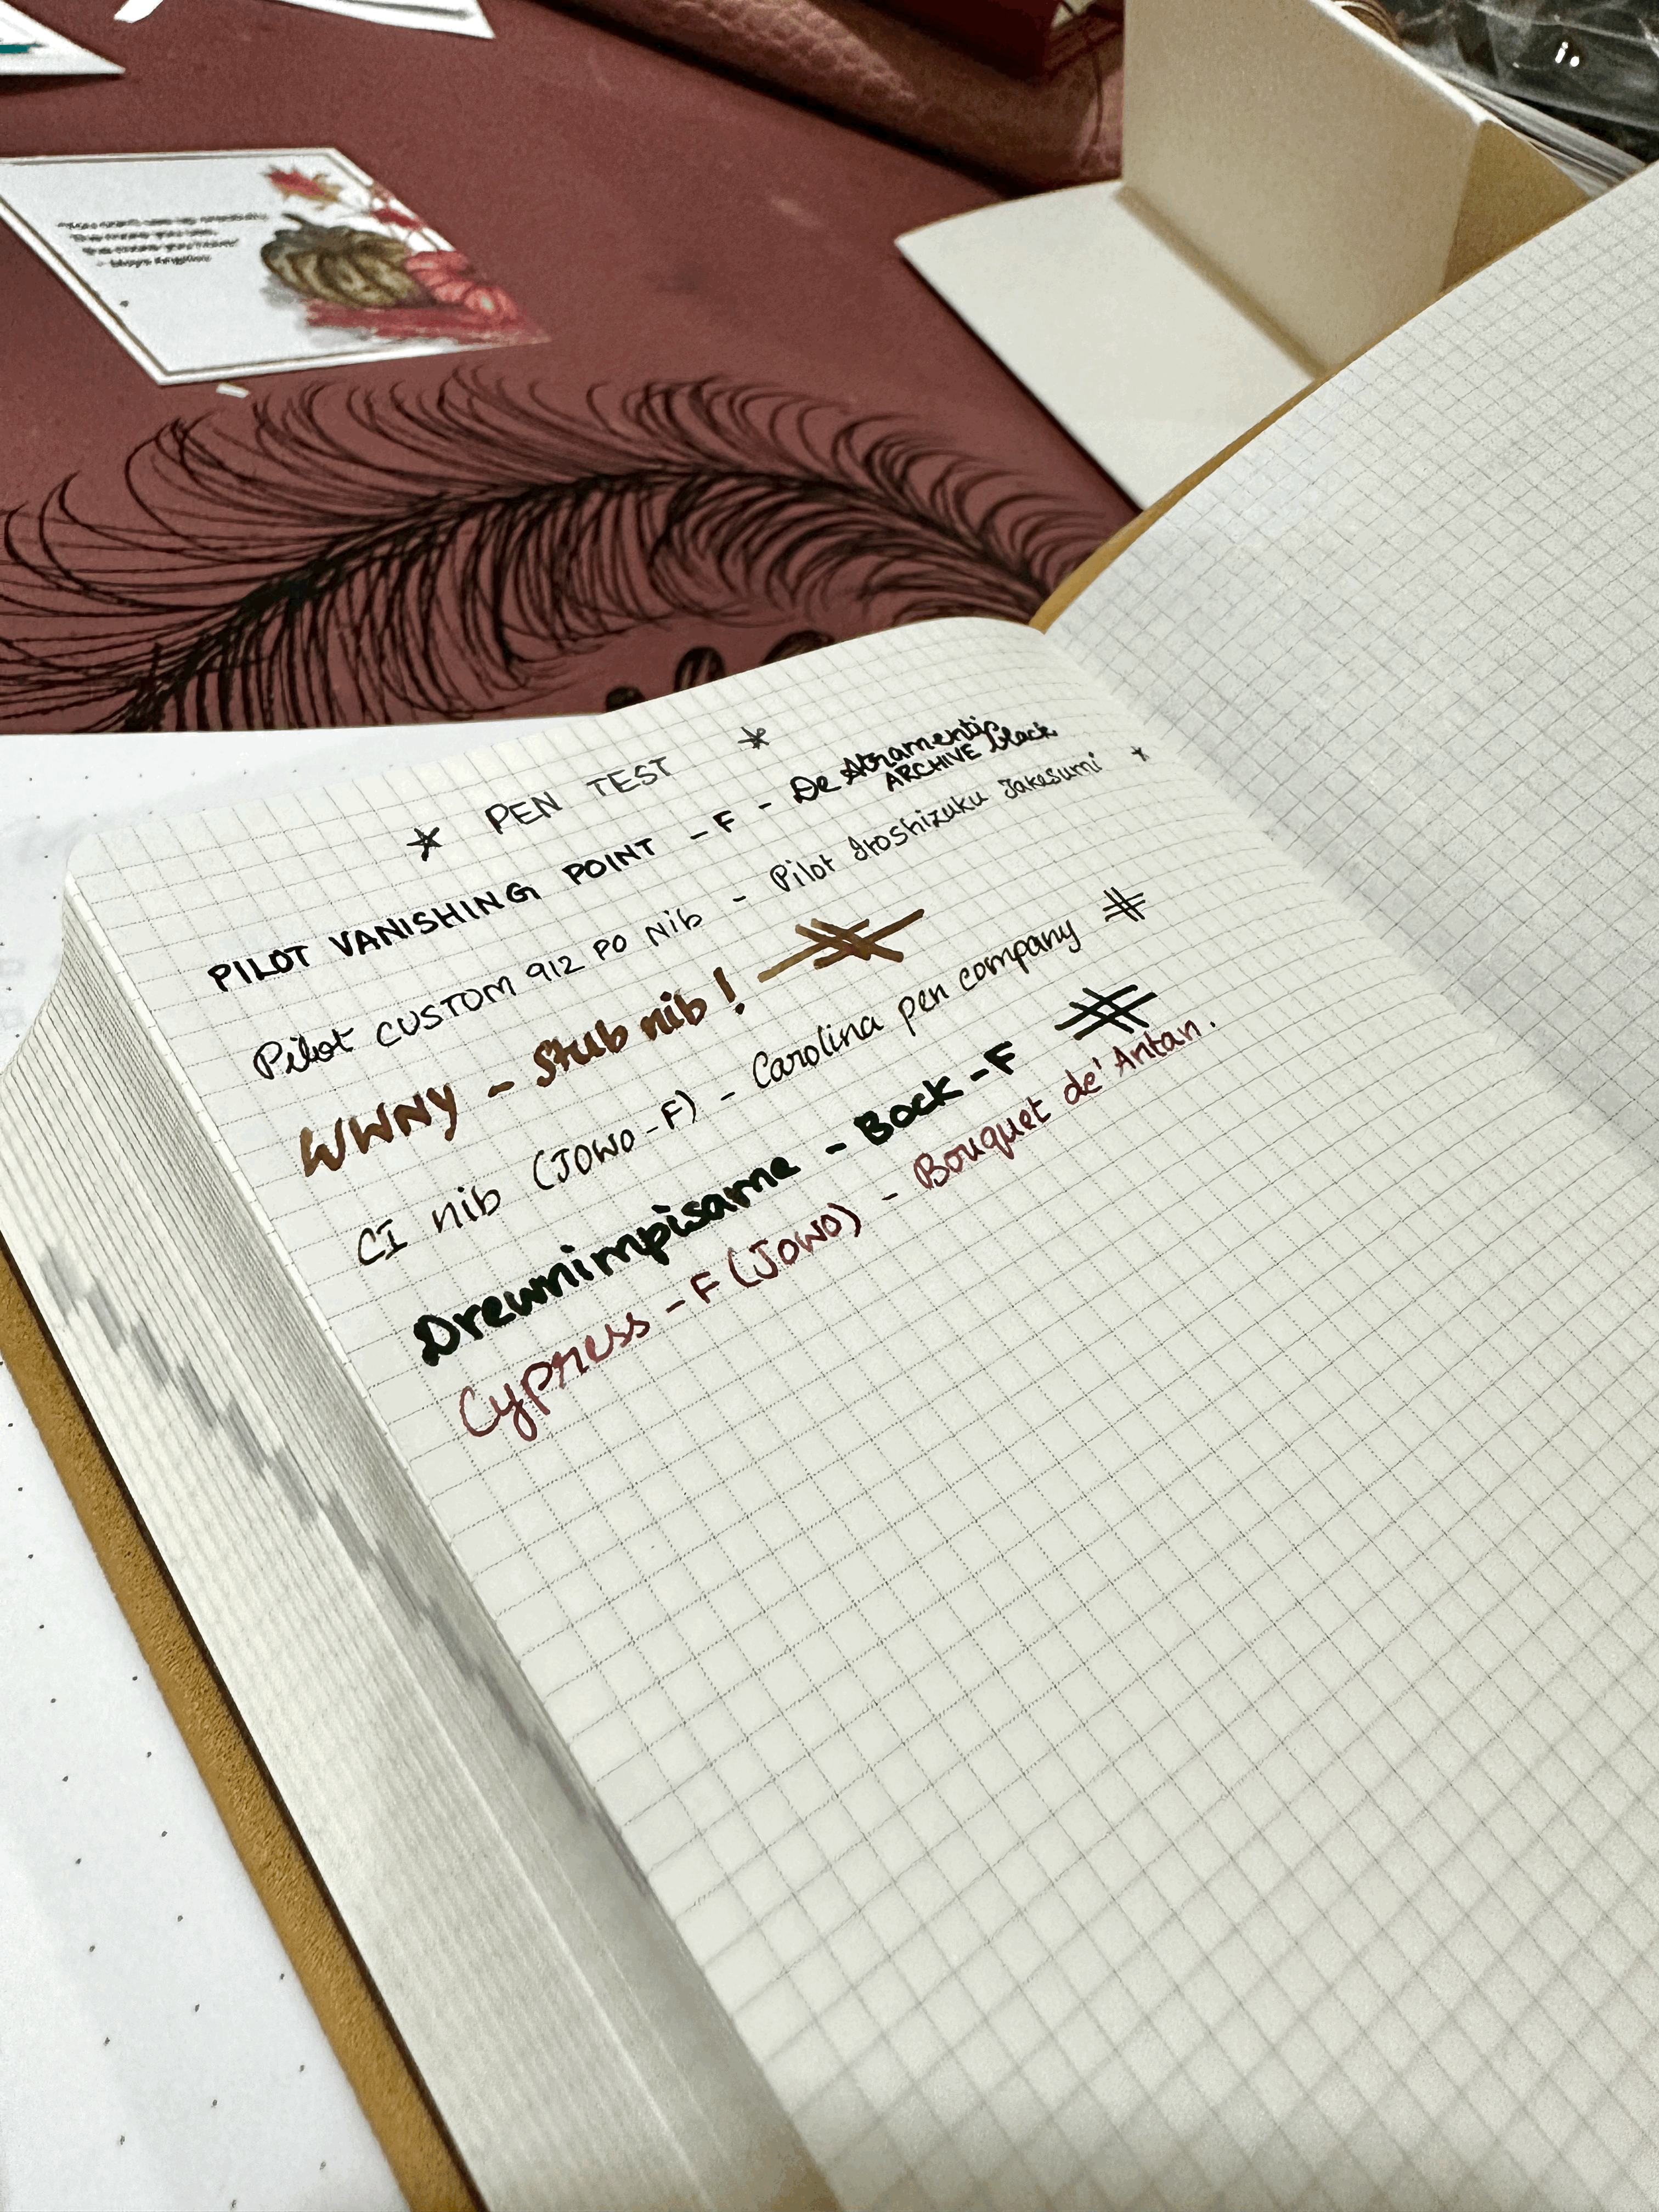 PEN TEST
PILOT VANISHING POINT - F - De Atramentis
ARCHIVE Black
Pilot CUSTOM 912 PO Nib - Pilot Iroshizuku Takesumi
WWNY - Stub nib!
CI nib (JOWO-F) - Carolina pen company
Drewnimpisame - Bock - F
Cypress - F (JOWO) - Bouquet de' Antan.